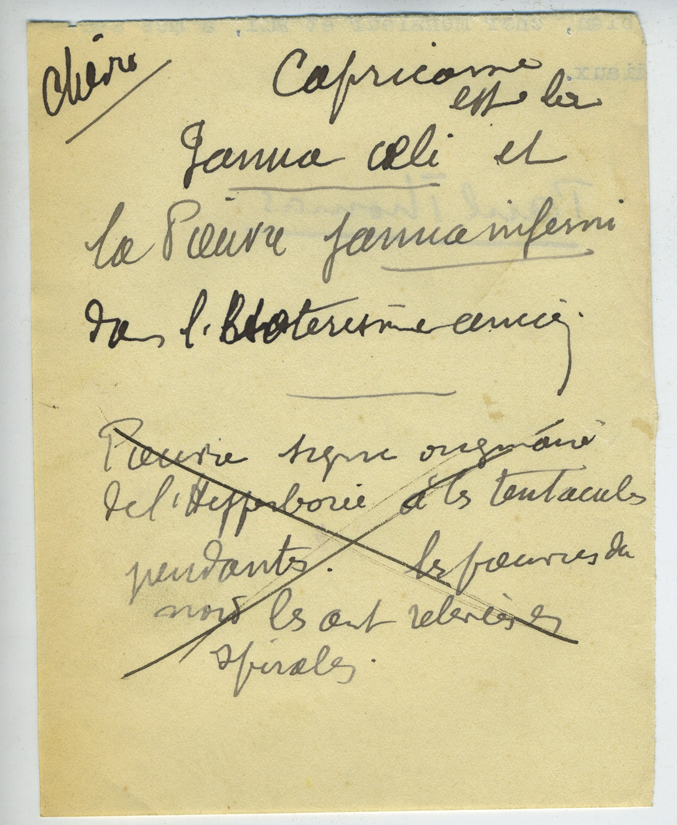 Chèvre
Capricorne
est la
Janua cœli et
la Pœuvre Janua inferni
dans l'Esoterisme ancien
Pœuvre signe originaire
de l'Hyperborée a les tentacules
pendantes. les pœuvres du
nord les ont relevées en
spirales.